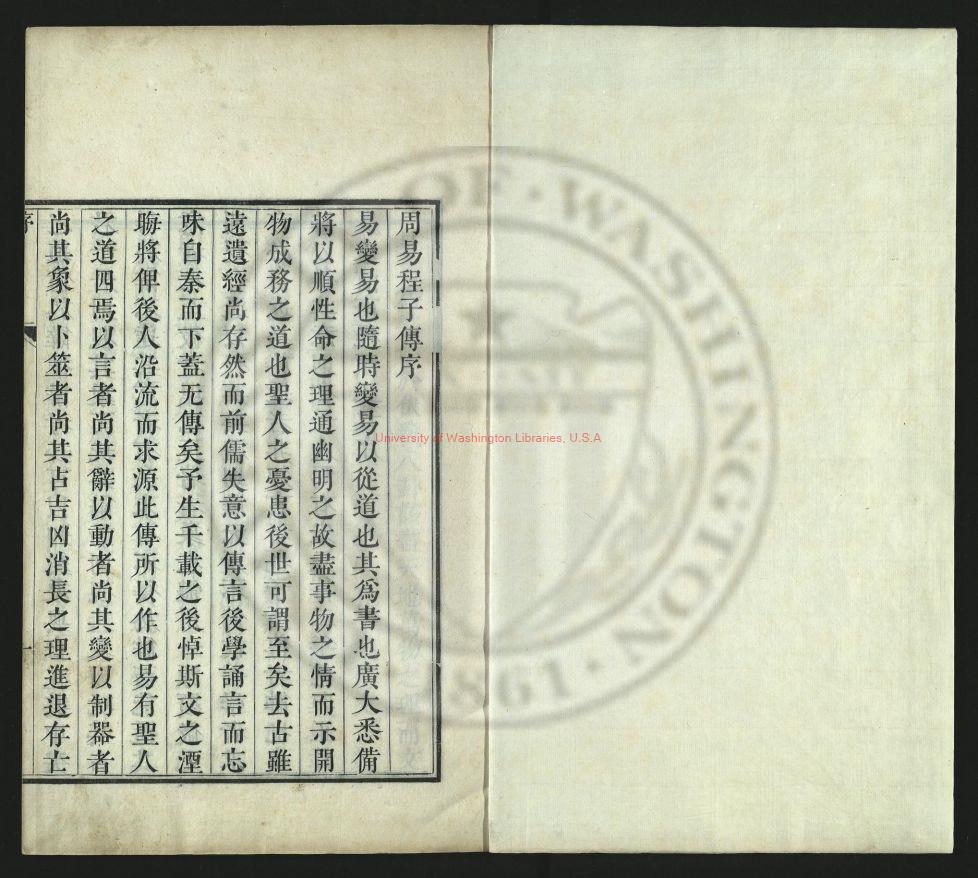 周易程子傳序
易變易也隨時變易以從道也其爲書也廣大悉備
將以順性命之理通幽明之故盡事物之情而示開
物成務之道也聖人之憂患後世可謂至矣去古雖
遠遺經尚存然而前儒失意以傳言後學誦言而忘
味自秦而下蓋无傳矣予生千載之後悼斯文之湮
晦將俾後人沿流而求源此傳所以作也易有聖人
之道四焉以言者尚其辭以動者尚其變以制器者
尚其象以卜筮者尚其占吉凶消長之理進退存亡
序
一
University of Washington Libraries, U.S.A
OF · WASHINGTON · 1861